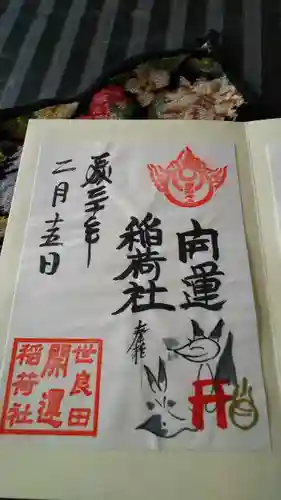 開運
稲荷社
奉拝
三十年
二月十五日
世良田
開運
稲荷社